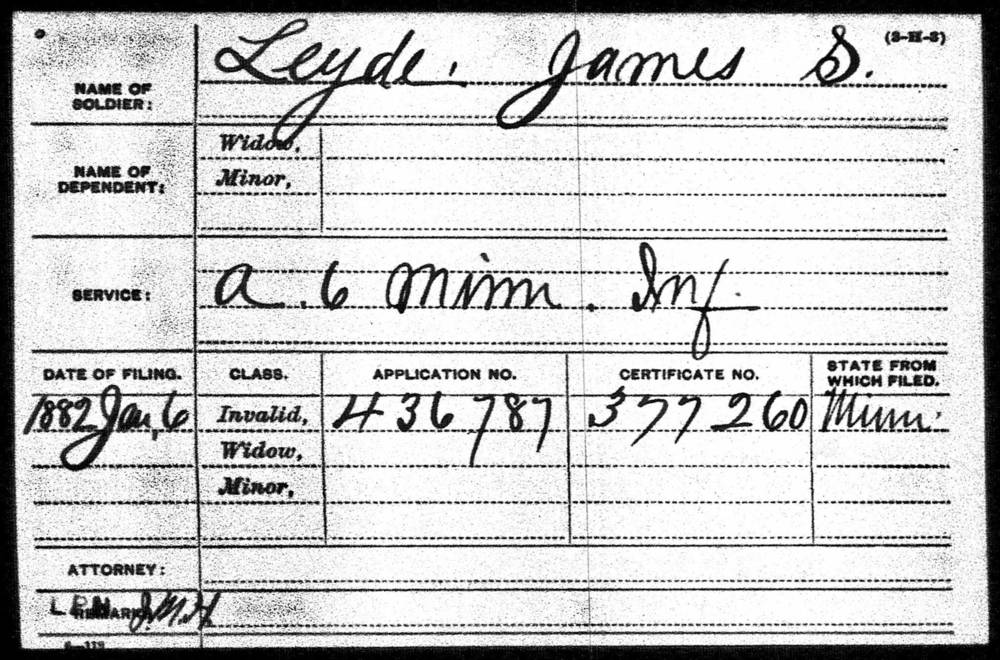 (3-H-3)
NAME OF SOLDIER: Leyde. James S.
NAME OF DEPENDENT: Widow,
Minor,
SERVICE: A. 6 Minn. Inf.
DATE OF FILING. CLASS. APPLICATION NO. CERTIFICATE NO. STATE FROM WHICH FILED.
1882 Jan, 6 Invalid, 436787 377260 Minn.
Widow,
Minor,
ATTORNEY:
REMARKS J.M.H.